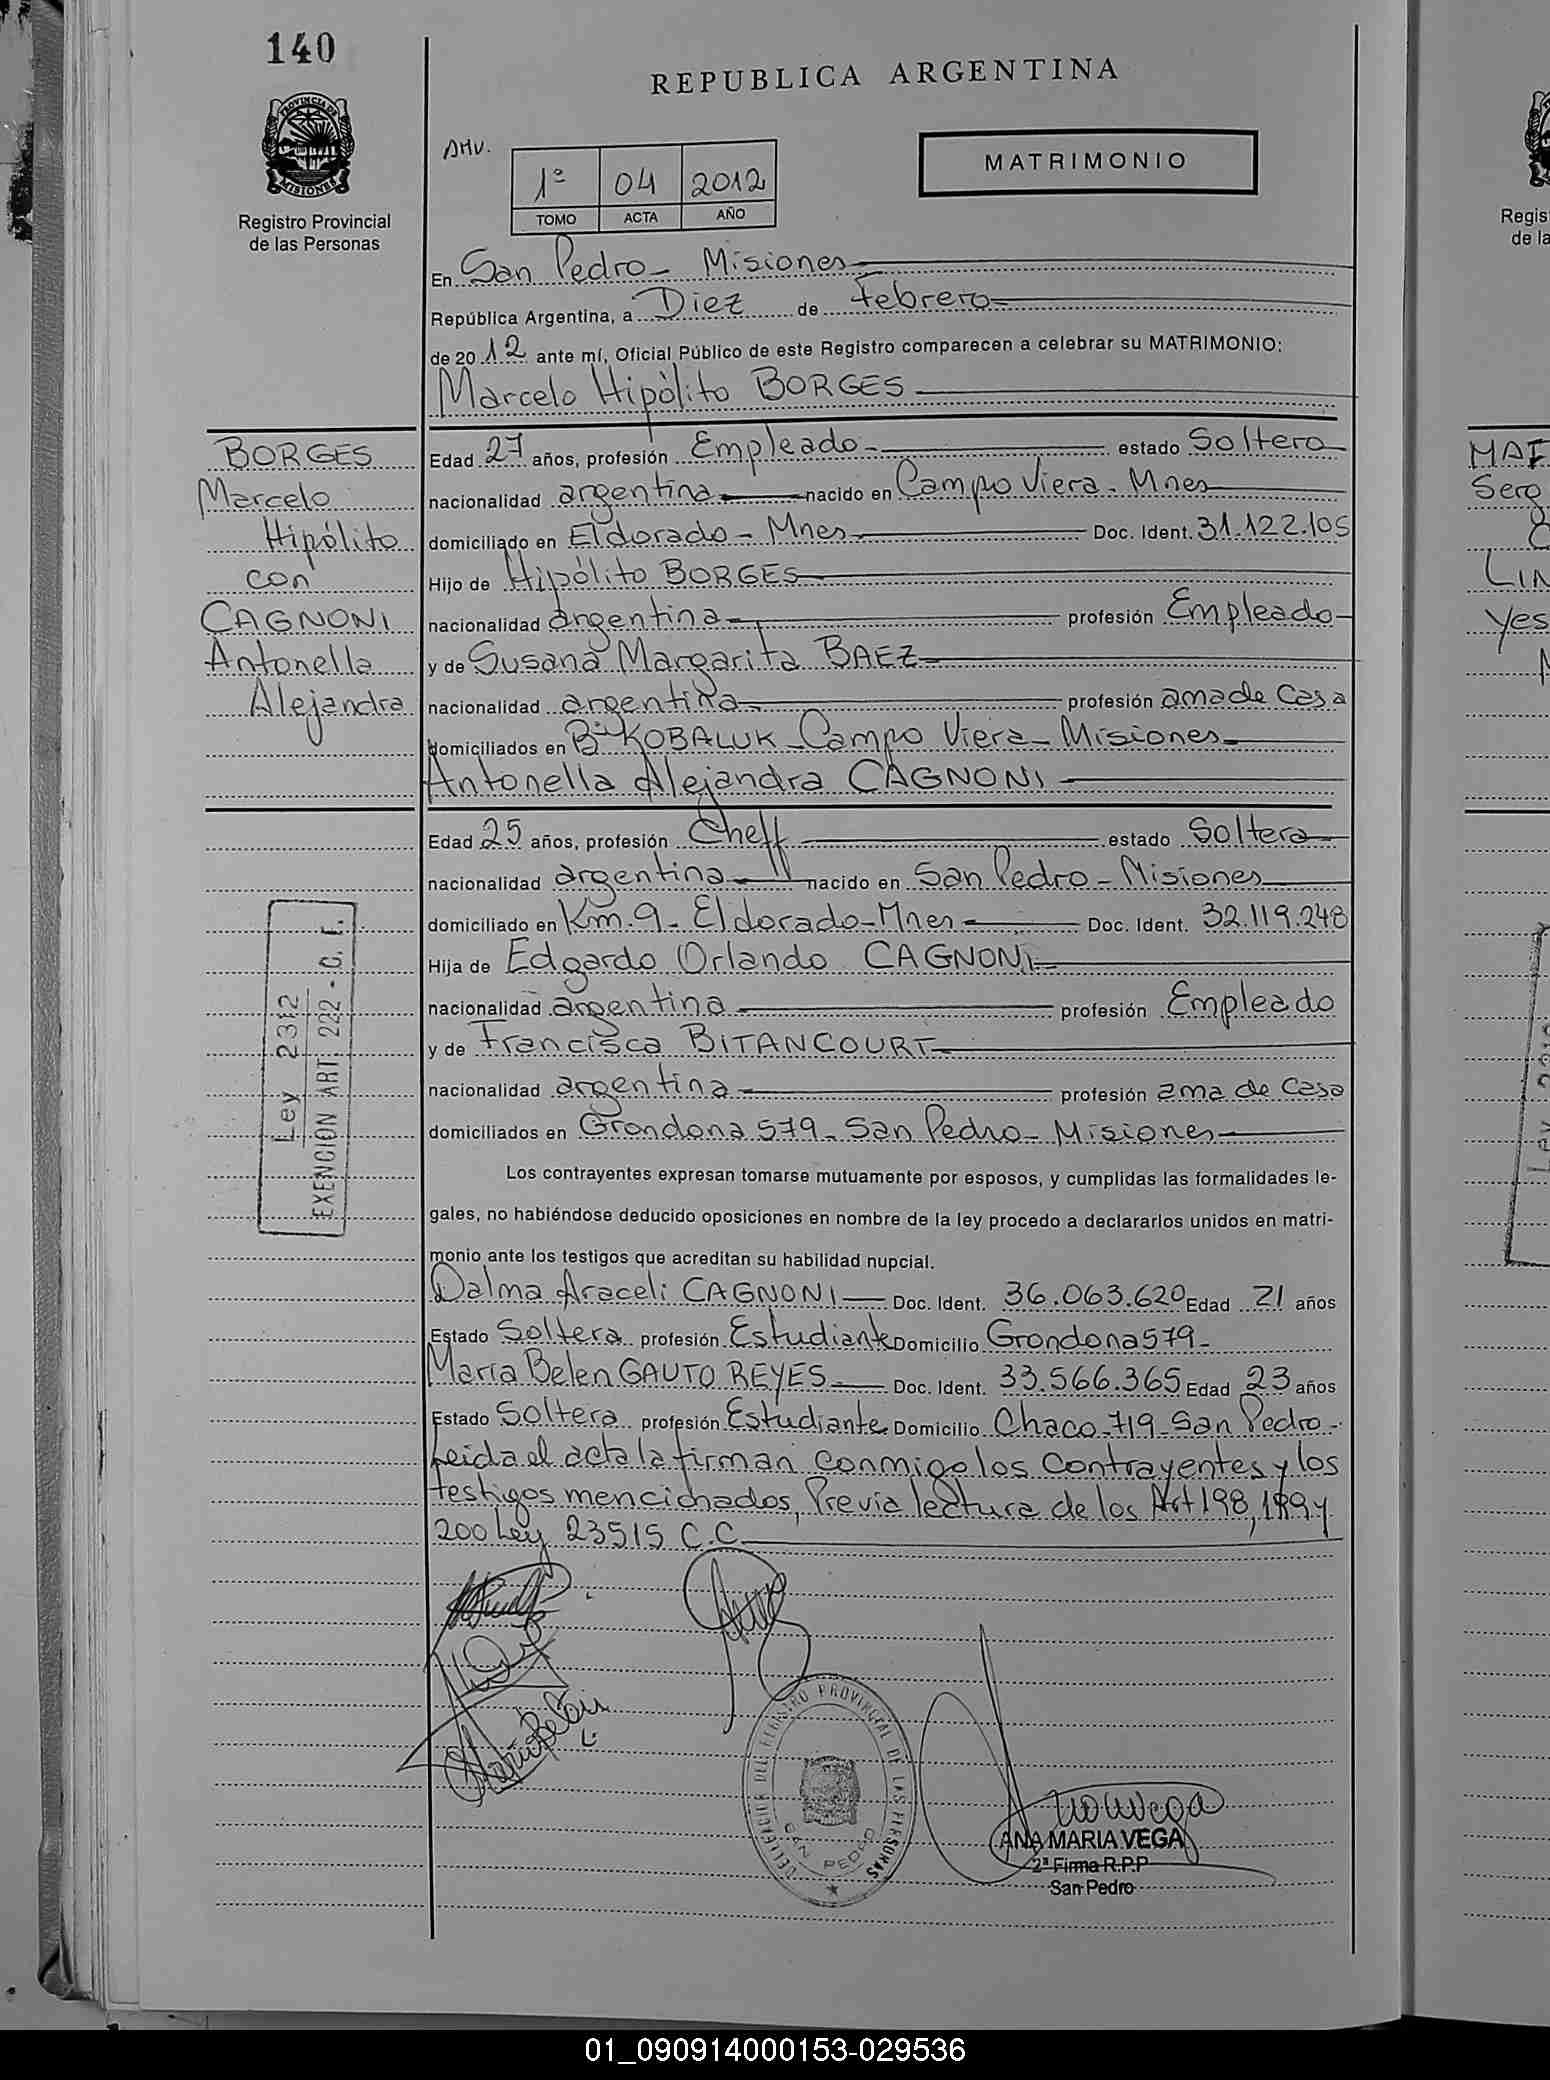 140
REPUBLICA ARGENTINA
PROVINCIA DE MISIONES
Registro Provincial
de las Personas
AMV.
1º 04 2012
TOMO ACTA AÑO
MATRIMONIO
En San Pedro - Misiones
República Argentina, a Diez de Febrero
de 2012 ante mí, Oficial Público de este Registro comparecen a celebrar su MATRIMONIO:
Marcelo Hipólito BORGES
BORGES
Marcelo
Hipólito
con
CAGNONI
Antonella
Alejandra
Edad 27 años, profesión Empleado estado Soltero
nacionalidad argentina nacido en Campo Viera - Mnes
domiciliado en Eldorado - Mnes Doc. Ident. 31.122.105
Hijo de Hipólito BORGES
nacionalidad argentina profesión Empleado
y de Susana Margarita BAEZ
nacionalidad argentina profesión ama de Casa
domiciliados en Bº KOBALUK - Campo Viera - Misiones
Antonella Alejandra CAGNONI
Edad 25 años, profesión Cheff estado Soltera
nacionalidad argentina nacido en San Pedro - Misiones
domiciliado en Km. 9 - Eldorado - Mnes Doc. Ident. 32.119.248
Hija de Edgardo Orlando CAGNONI
nacionalidad argentina profesión Empleado
y de Francisca BITANCOURT
nacionalidad argentina profesión ama de Casa
domiciliados en Grondona 579 - San Pedro - Misiones
Ley 2312
EXENCION ART 222 - C. F.
Los contrayentes expresan tomarse mutuamente por esposos, y cumplidas las formalidades le-
gales, no habiéndose deducido oposiciones en nombre de la ley procedo a declararlos unidos en matri-
monio ante los testigos que acreditan su habilidad nupcial.
Dalma Araceli CAGNONI Doc. Ident. 36.063.620 Edad 21 años
Estado Soltera profesión Estudiante Domicilio Grondona 579 -
Maria Belen GAUTO REYES Doc. Ident. 33.566.365 Edad 23 años
Estado Soltera profesión Estudiante Domicilio Chaco - 719 - San Pedro -
Leida el acta la firman conmigo los Contrayentes y los
testigos mencionados, Previa lectura de los Art 198, 199 y
200 Ley 23515 C.C.
DELEGACION DEL REGISTRO PROVINCIAL DE LAS PERSONAS
SAN PEDRO
ANA MARIA VEGA
2ª Firma R.P.P
San Pedro
01_090914000153-029536